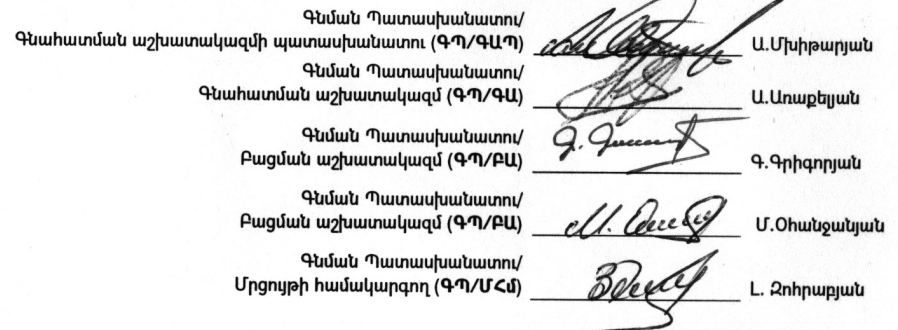 Գնման Պատասխանատու/
Գնահատման աշխատակազմի պատասխանատու (ԳՊ/ԳԱՊ) Ա.Մխիթարյան
Գնման Պատասխանատու/
Գնահատման աշխատակազմ (ԳՊ/ԳԱ) Ա.Առաքելյան
Գնման Պատասխանատու/
Բացման աշխատակազմ (ԳՊ/ԲԱ) Գ.Գրիգորյան
Գնման Պատասխանատու/
Բացման աշխատակազմ (ԳՊ/ԲԱ) Մ.Օհանջանյան
Գնման Պատասխանատու/
Մրցույթի համակարգող (ԳՊ/ՄՀմ) Լ. Զոհրաբյան